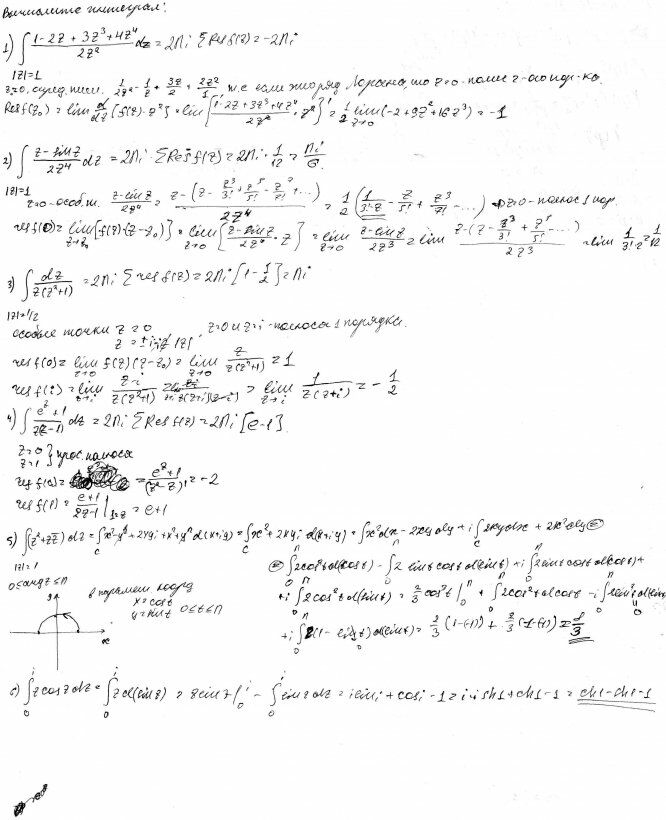 Вычислите интеграл:
1) ∫ (1-2z+3z³+4z⁴)/(2z²) dz = 2πi ΣResf(z) = -2πi
|z|=1
z=0, 1/(2z²) - 1/z + 3z/2 + 2z²/1 т.е. если это ряд Лорана, то z=0 - полюс 2-ого пор-ка.
Resf(z₀) = lim d/dz [f(z)·z²] = lim [(1-2z+3z³+4z⁴)/(2z²) · z²]' = 1/2 lim z→0 (-2+9z²+16z³) = -1
2) ∫ (z-sinz)/(2z⁴) dz = 2πi ΣResf(z) = 2πi · 1/12 = πi/6.
|z|=1
z=0-особ. т. (z-sinz)/(2z⁴) = (z-(z-z³/3!+z⁵/5!-z⁷/7!+...))/(2z⁴) = 1/2 (1/(3!·z) - z/5! + z³/7! - ...) z=0-полюс 1 пор.
resf(0) = lim z→z₀ [f(z)·(z-z₀)] = lim z→0 [(z-sinz)/(2z⁴) · z] = lim z→0 (z-sinz)/(2z³) = lim (z-(z-z³/3!+z⁵/5!-...))/(2z³) = lim 1/(3!·2) = 1/12
3) ∫ dz/(z(z²+1)) = 2πi Σ resf(z) = 2πi [1-1/2] = πi
|z|=1/2
особые точки z=0
z=±i, z=0 и z=i-полюса 1 порядка.
resf(0) = lim z→0 f(z)(z-z₀) = lim z→0 z/(z(z²+1)) = 1
resf(i) = lim z→i (z-i)/(z(z²+1)) = lim z→i 1/(z(z+i)) = -1/2
4) ∫ (e^z+1)/(z(z-1)) dz = 2πi ΣResf(z) = 2πi [e-1].
z=0
z=1 } прос. полюса
resf(0) = (e^z+1)/(z²-z)' = -2
resf(1) = (e+1)/(2z-1) | = e+1
5) ∫(z²+zz̄)dz = ∫ x²-y²+2xyi+x²+y² d(x+iy) = ∫ 2x²+2xyi d(x+iy) = ∫ 2x²dx - 2xy dy + i∫ 2xydx + 2x²dy =
|z|=1
0≤argz≤π
в парамет. коорд
x=cost
y=sint 0≤t≤π
y
x
= ∫ 2cos²t d(cost) - ∫ 2 sint cost d(sint) + i∫ 2sint cost d(cost) +
+ i∫ 2cos²t d(sint) = 2/3 cos³t |₀^π + ∫ 2cos²t dcost - i∫ 2sin²t dsint
+ i∫ 2(1-sin²t)d(sint)
6) ∫₀^i z cosz dz = ∫₀^i z d(sinz) = z sinz |₀^i - ∫₀^i sinz dz = i sini + cosi - 1 = i·i sh1 + ch1 - 1 = ch1-sh1-1